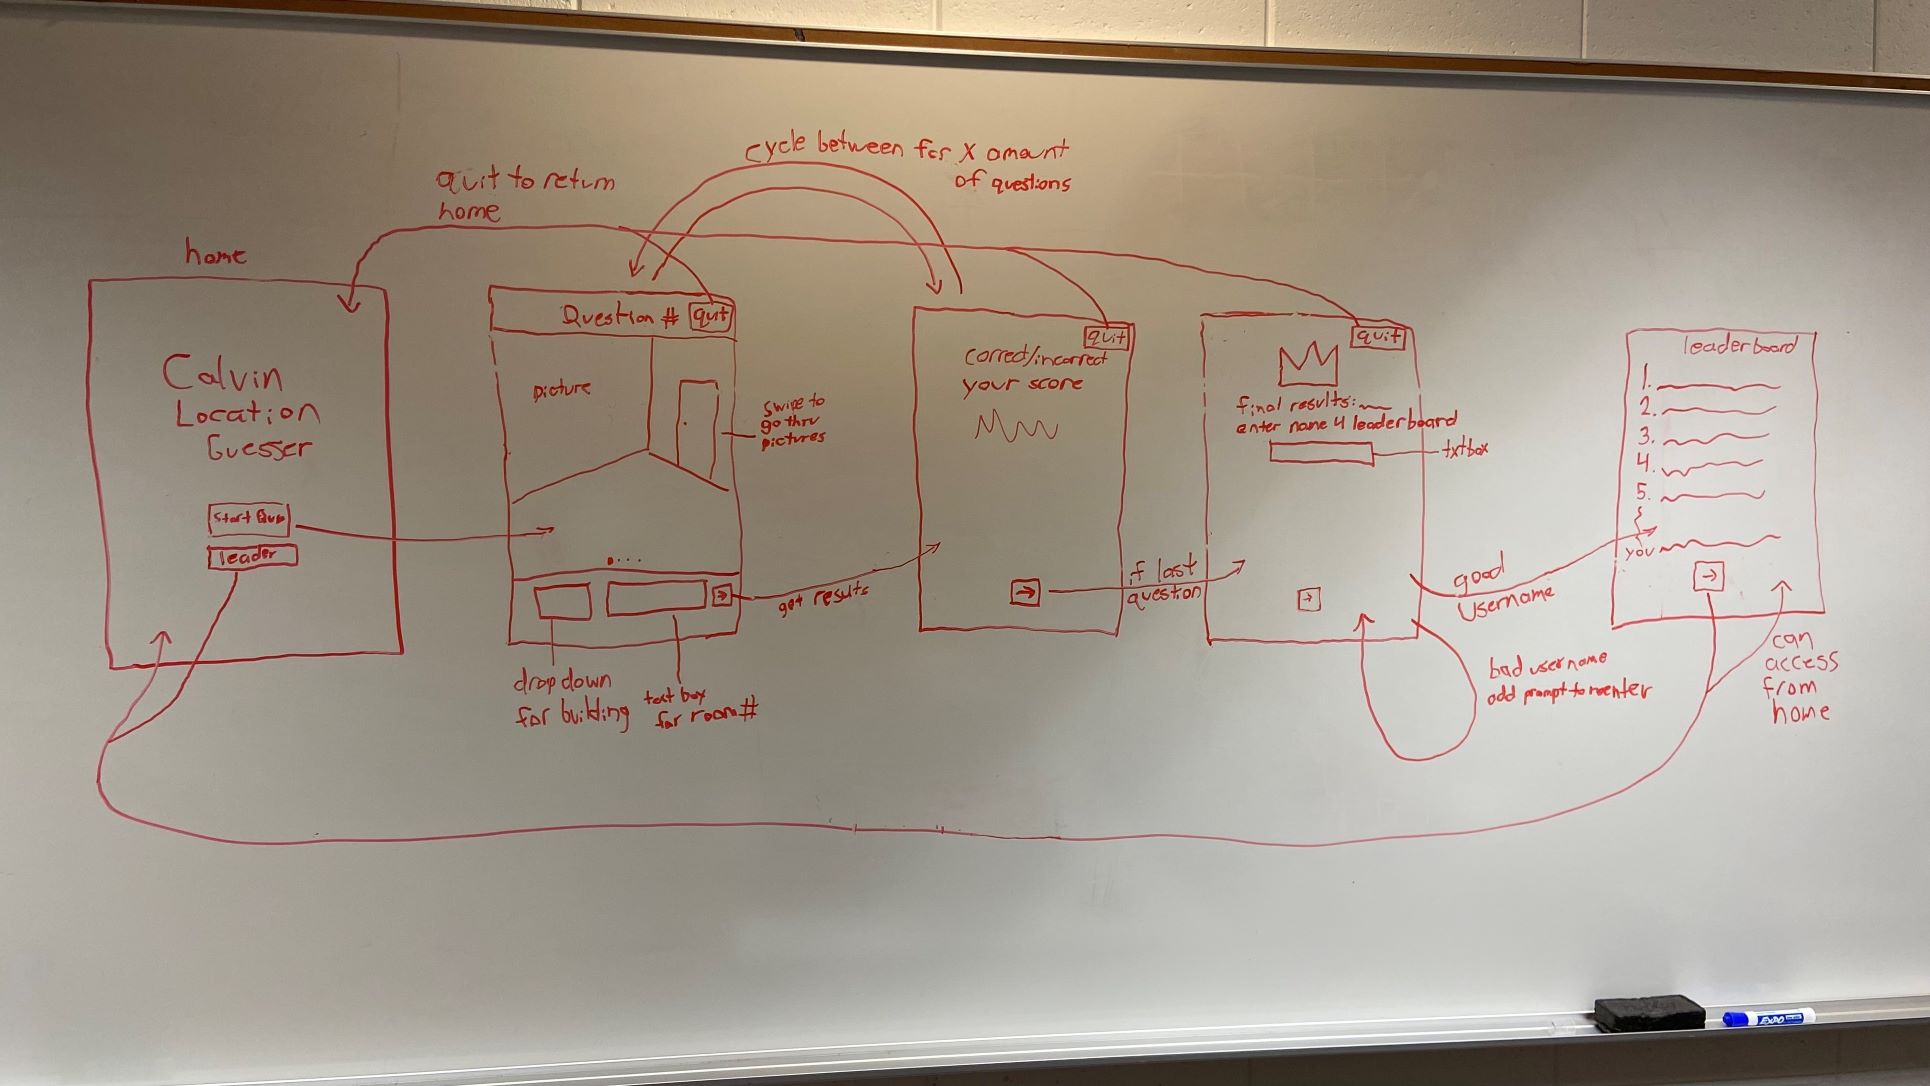 cycle between for X amount
of questions
quit to return
home
home
Calvin
Location
Guesser
Start
leader
Question #
quit
picture
swipe to
go thru
pictures
drop down
for building
text box
for room #
get results
quit
correct/incorrect
your score
if last
question
quit
final results:
enter name 4 leaderboard
txtbox
good
Username
bad username
add prompt to reenter
leaderboard
1.
2.
3.
4.
5.
you
can
access
from
home
EXPO